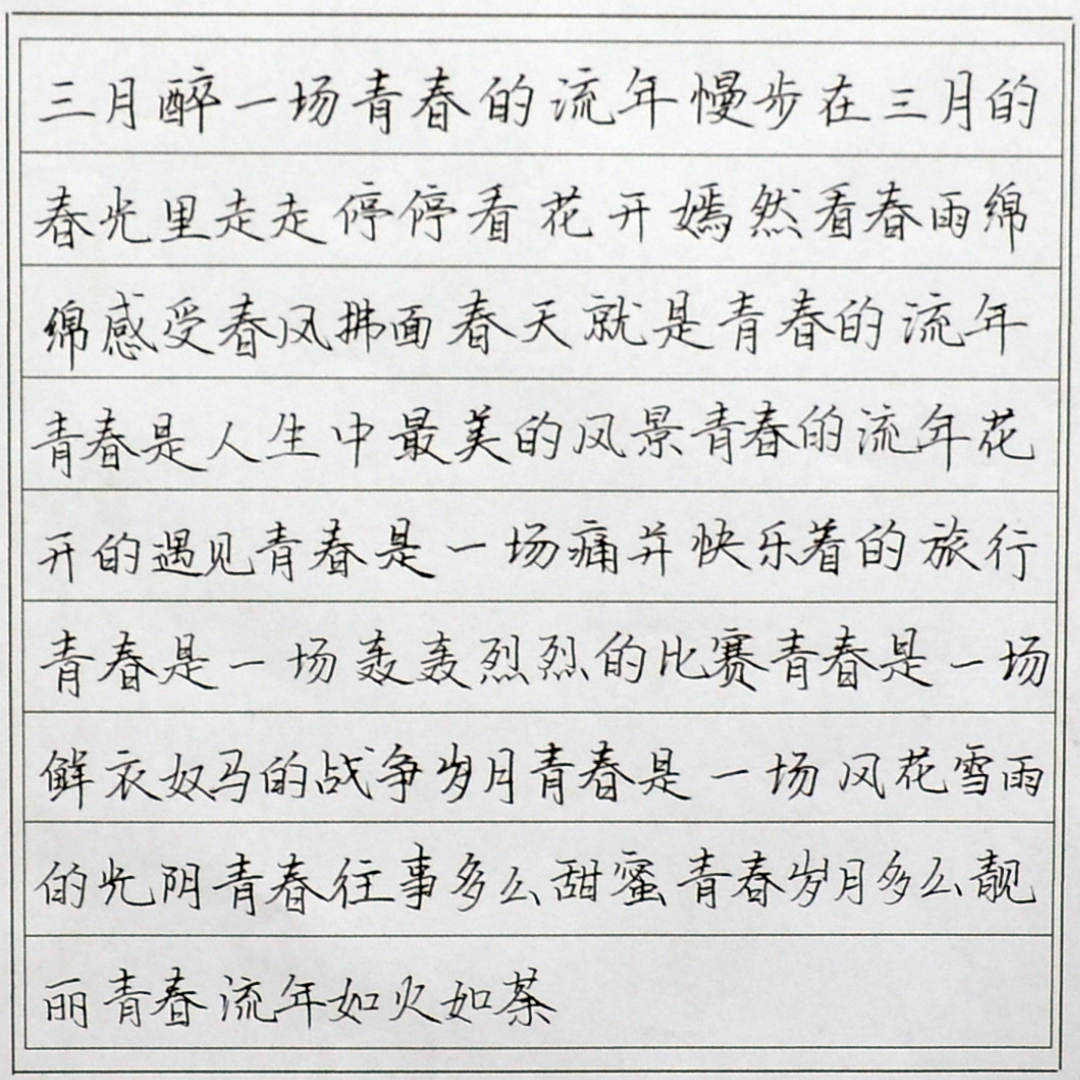 三月醉一场青春的流年慢步在三月的
春光里走走停停看花开嫣然看春雨绵
绵感受春风拂面春天就是青春的流年
青春是人生中最美的风景青春的流年花
开的遇见青春是一场痛并快乐着的旅行
青春是一场轰轰烈烈的比赛青春是一场
鲜衣奴马的战争岁月青春是一场风花雪雨
的光阴青春往事多么甜蜜青春岁月多么靓
丽青春流年如火如荼